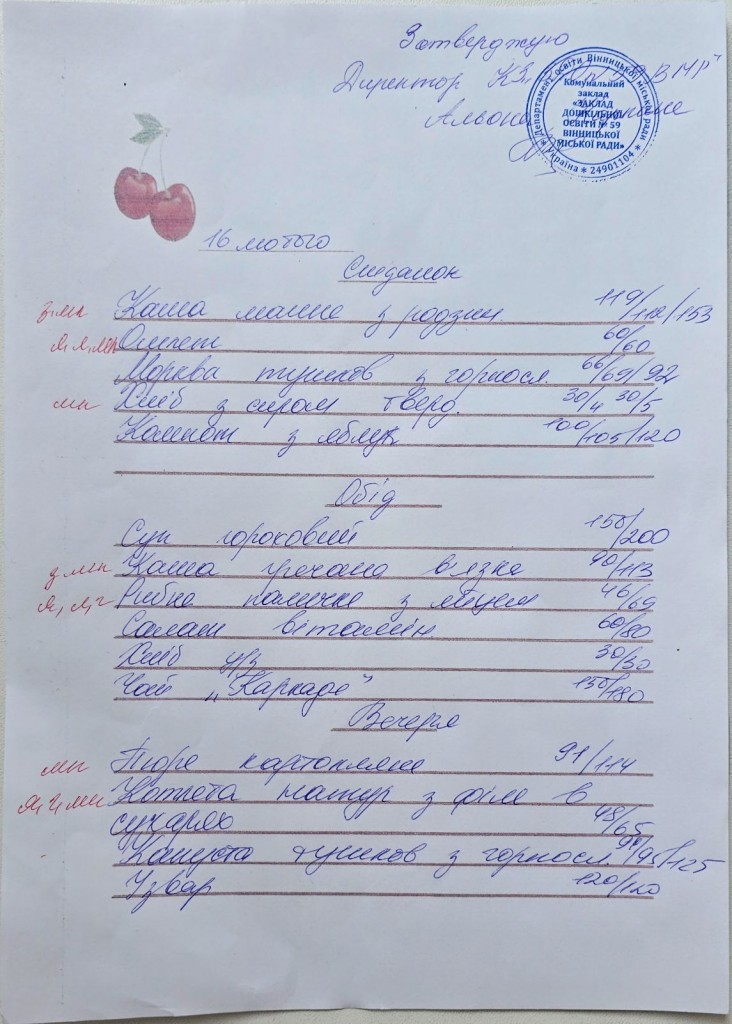 Затверджую
Директор КЗ ВМР"
Альона
Департамент освіти Вінницької міської ради
Комунальний
заклад
«ЗАКЛАД
ДОШКІЛЬНОЇ
ОСВІТИ № 59
ВІННИЦЬКОЇ
МІСЬКОЇ РАДИ»
* Україна * 24901104 *
16 лютого
Сніданок
Каша манна з родзин. 119/112/153
Омлет 60/60
Морква тушков з горпосл. 66/69/92
мп Хліб з сиром тверд. 30/4 30/5
Компот з яблук 100/105/120
Обід
Суп гороховий 150/200
Каша гречана в'язка 90/113
Рибна паличка з яйцем 46/69
Салат вітамін 60/80
Хліб у/з 30/30
Чай „Каркаде" 150/180
Вечеря
мп Пюре картопляне 91/114
Котлета натур з філе в
сухарях 48/65
Капуста тушков з горпосл. 90/95/125
Узвар 120/120